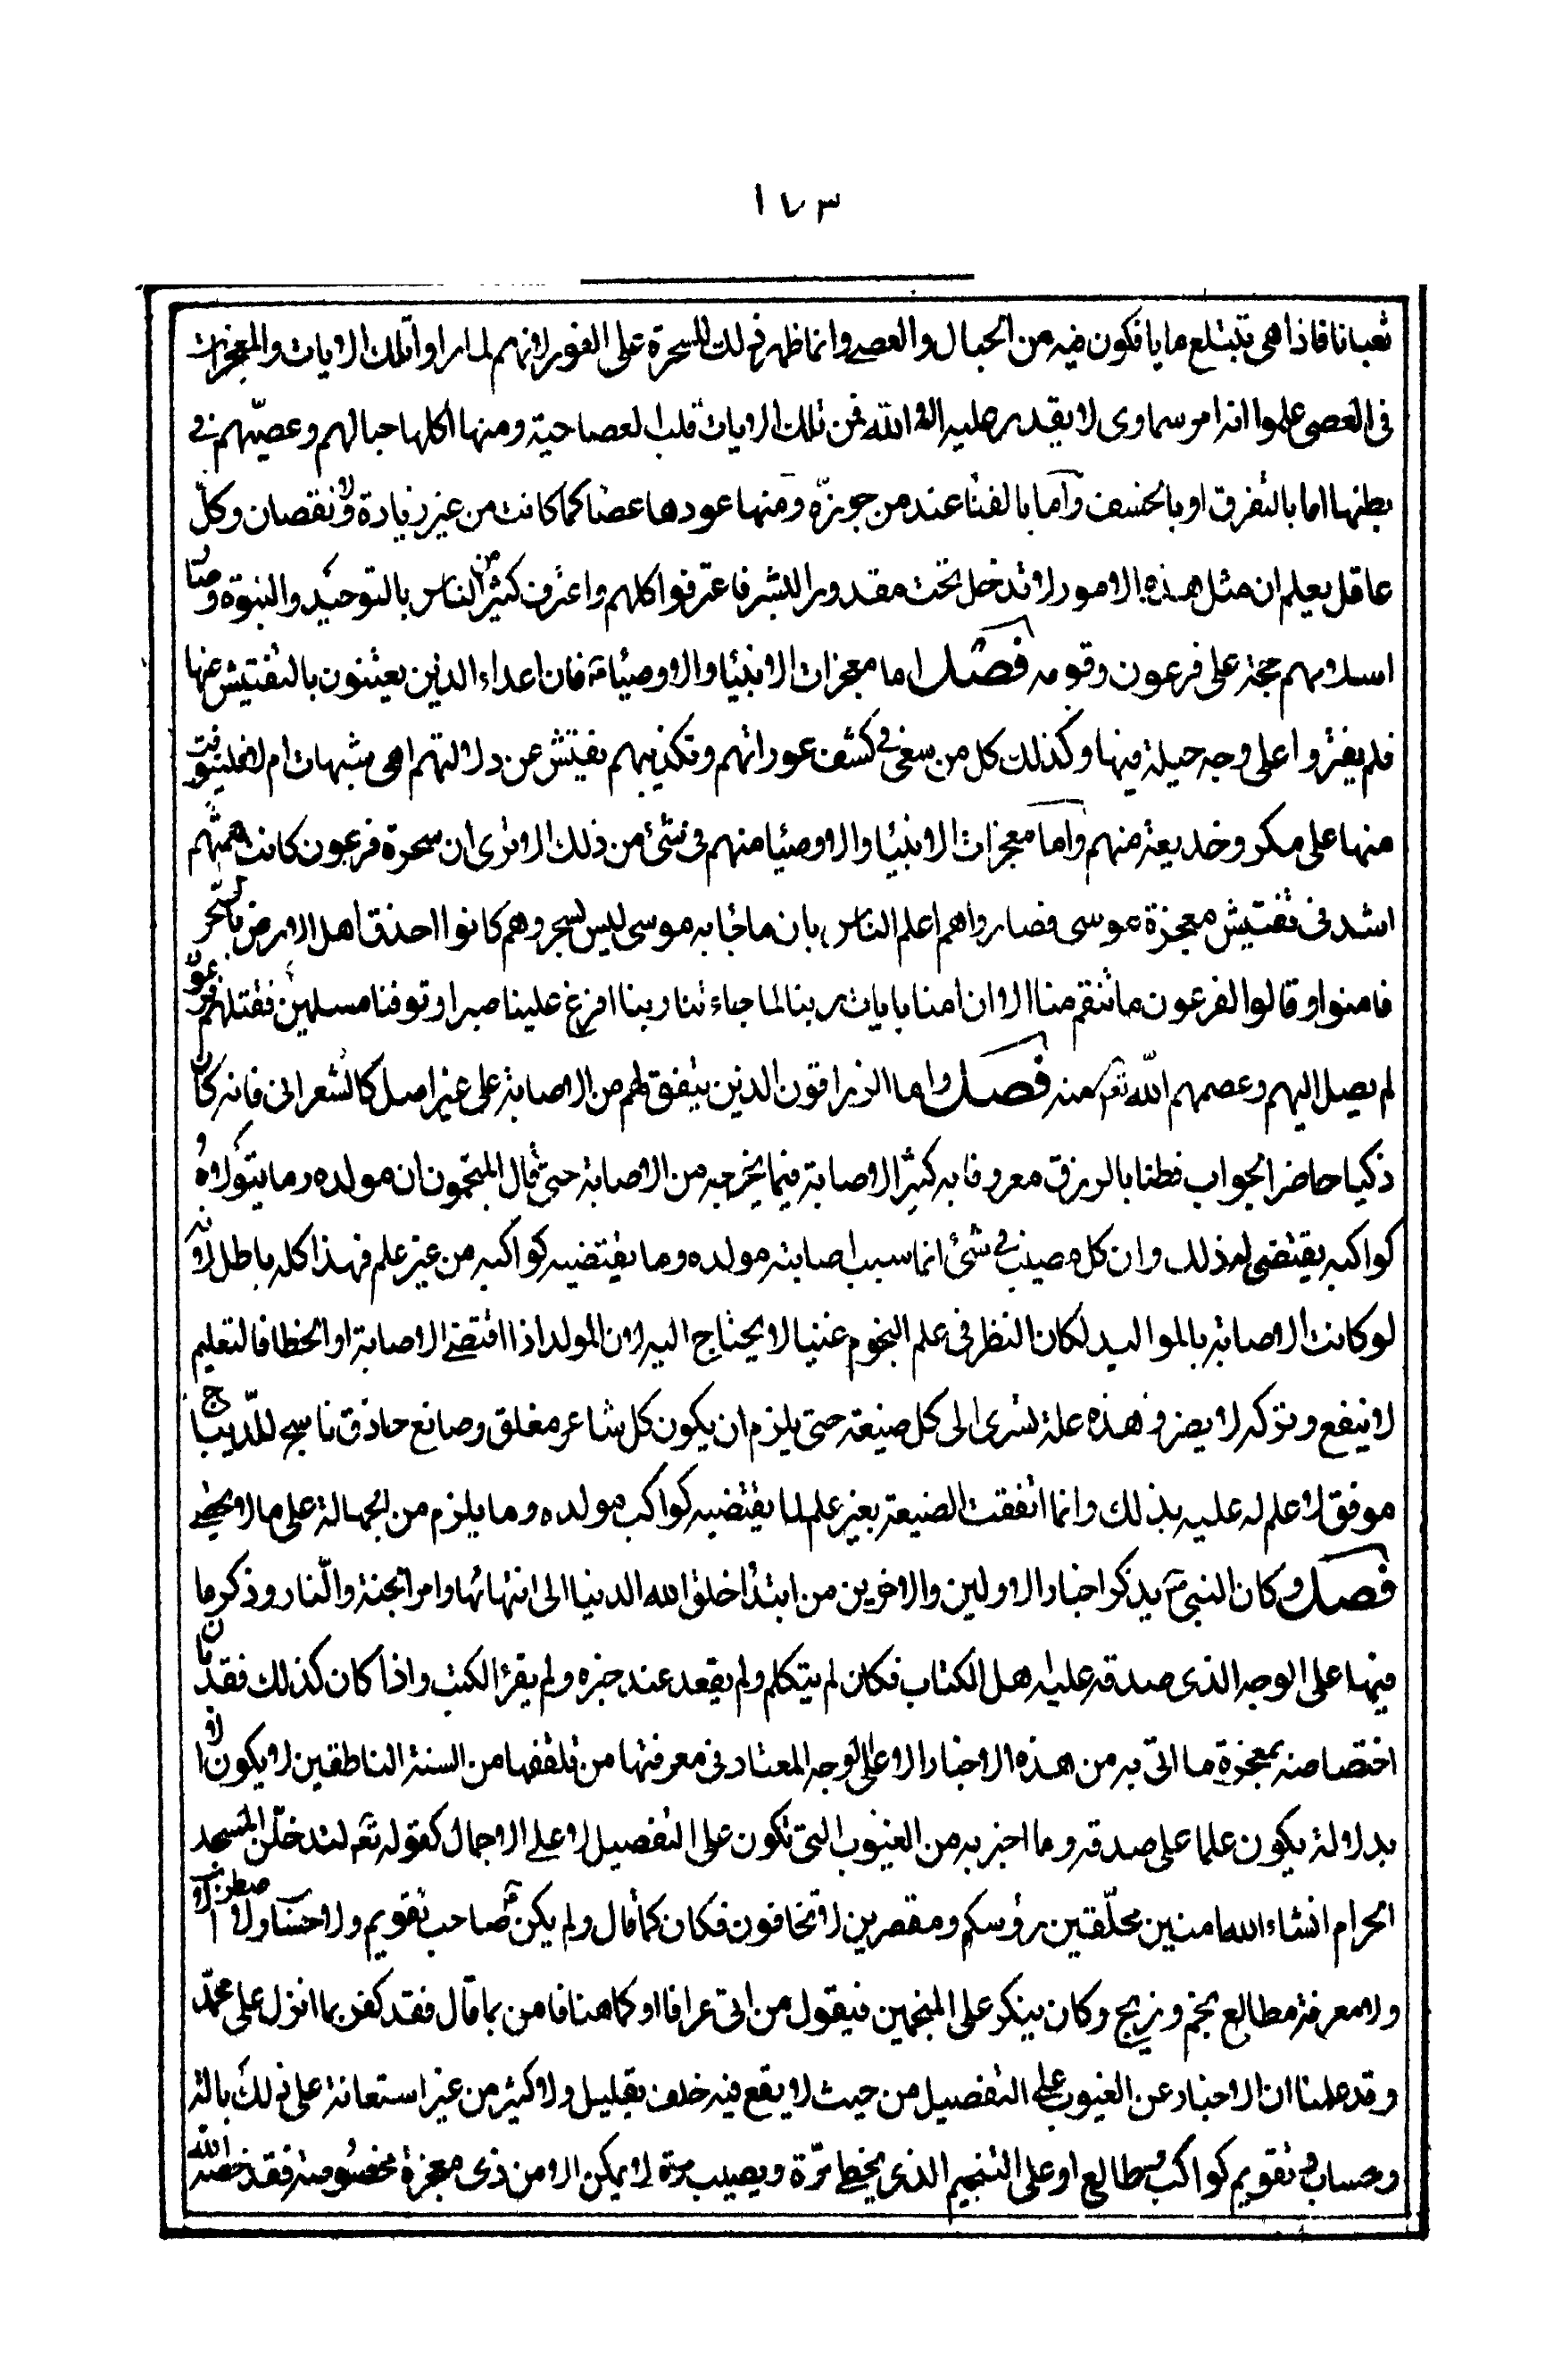 ١٧٣
ثعبانا فاذا هى تبتلع ما يافكون فيه من الحبال والعصى وانما ظهر ذلك للسحرة على الفور لانهم لما راوا تلك الايات والمعجزات
فى العصى علموا انه امر سماوى لا يقدر عليه الا الله فمن تلك الايات قلب العصا حية ومنها اكلها حبالهم وعصيّهم فى
بطنها اما بالتفرق او بالخسف واما بالفنا عند من جوزه ومنها عودها عصا كما كانت من غير زيادة ولا نقصان وكلّ
عاقل يعلم ان مثل هذه الامور لا تدخل تحت مقدور البشر فاعترفوا كلهم واعترف كثير من الناس بالتوحيد والنبوة وصار
اسلامهم حجة على فرعون وقومه فصل اما معجزات الانبيا والاوصيا فان اعداء الدين يعتنون بالتفتيش عنها
فلم يعثروا على وجه حيلة فيها وكذلك كل من سعى فى كشف عوراتهم وتكذيبهم يفتش عن دلالتهم اهى شبهات ام لا فلم يوقف
منها على مكر وخديعة منهم واما معجزات الانبيا والاوصيا منهم فى شئ من ذلك الا ترى ان سحرة فرعون كانت همتهم
اشد فى تفتيش معجزة موسى فصاروا هم اعلم الناس بان ما جا به موسى ليس لسحر وهم كانوا احذق اهل الارض بالسّحر
فامنوا وقالوا لفرعون ما تنقم منا الا ان امنا بايات ربنا لما جاءتنا ربنا افرغ علينا صبرا وتوفنا مسلمين فقتلهم فرعون
لم يصل اليهم وعصمهم الله تعم منه فصل واما الزراقون الذين يتفق لهم من الاصابة على غير اصل كالشعرانى فانه كان
ذكيا حاضر الجواب فطنا بالزرق معروفا به كثير الاصابة فيما يخرجه من الاصابة حتى قال المنجمون ان مولده وما يتولاه
كواكبه يقتضى له ذلك وان كل مصيب فى شئ انما سبب اصابته مولده وما يقتضيه كواكبه من غير علم فهذا كله باطل لانه
لو كانت الاصابة بالمواليد لكان النظر فى علم النجوم عنيا لا يحتاج اليه لان المولد اذا اقتضى الاصابة او الخطا فالتعليم
لا ينفع وتركه لا يضر وهذه علة تسرى الى كل صنيعة حتى يلزم ان يكون كل شاعر مغلق وصانع حاذق ناسج للّديباج
موفق لا علم له عليه بذلك وانما اتفقت الصنيعة بغير علم لما يقتضيه كواكب مولده وما يلزم من الجهالة على ما لا يحصى
فصل وكان النبى ص يذكر اخبار الاولين والاخرين من ابتدأ خلق الله الدنيا الى انتهائها وامر الجنة والنار وذكر ما
فيها على الوجه الذى صدقه عليه اهل الكتاب فكان لم يتكلم ولم يقعد عند حبر ولم يقرأ الكتب واذا كان كذلك فقد بان
اختصاصه بمعجزة ما اتى به من هذه الاخبار لا على الوجه المعتاد فى معرفتها من تلقفها من السنة الناطقين لا يكون الا
بدلالة يكون علما على صدقه وما اخبر به من الغيوب التى تكون على التفصيل لا على الاجمال كقوله تعم لتدخلّن المسجد
الحرام انشاء الله امنين محلّقين رؤسكم ومقصرين لا تخافون فكان كما قال ولم يكن ص صاحب تقويم ولا حساب ولا اصطرلاب
ولا معرفة مطالع نجم وزيج وكان ينكر على المنجمين فيقول من اتى عرافا او كاهنا فامن بما قال فقد كفر بما انزل على محمّد
وقد علمنا ان الاخبار عن الغيوب على التفصيل من حيث لا يقع فيه خلف بقليل ولا كثير من غير استعانة على ذلك بالة
وحساب وتقويم كواكب وطالع او على التنجيم الذى يخطى مرّة ويصيب مرة لا يمكن الا من ذى معجزة مخصوصة فقد خصه الله